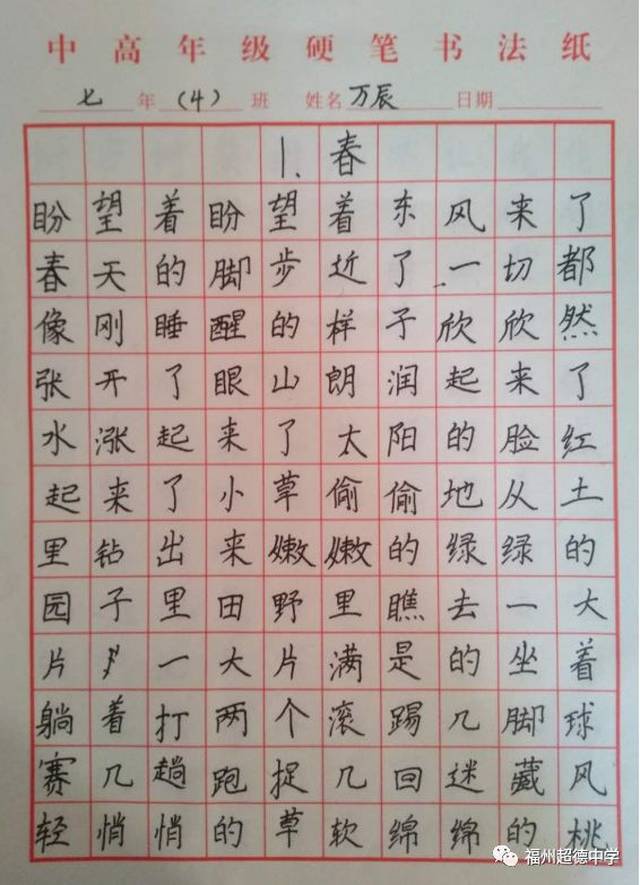 中高年级硬笔书法纸
七年(4)班 姓名万辰 日期
1、春
盼望着盼望着东风来了
春天的脚步近了一切都
像刚睡醒的样子欣欣然
张开了眼山朗润起来了
水涨起来了太阳的脸红
起来了小草偷偷地从土
里钻出来嫩嫩的绿绿的
园子里田野里瞧去一大
片一大片满是的坐着
躺着打两个滚踢几脚球
赛几趟跑捉几回迷藏风
轻悄悄的草软绵绵的桃
福州超德中学